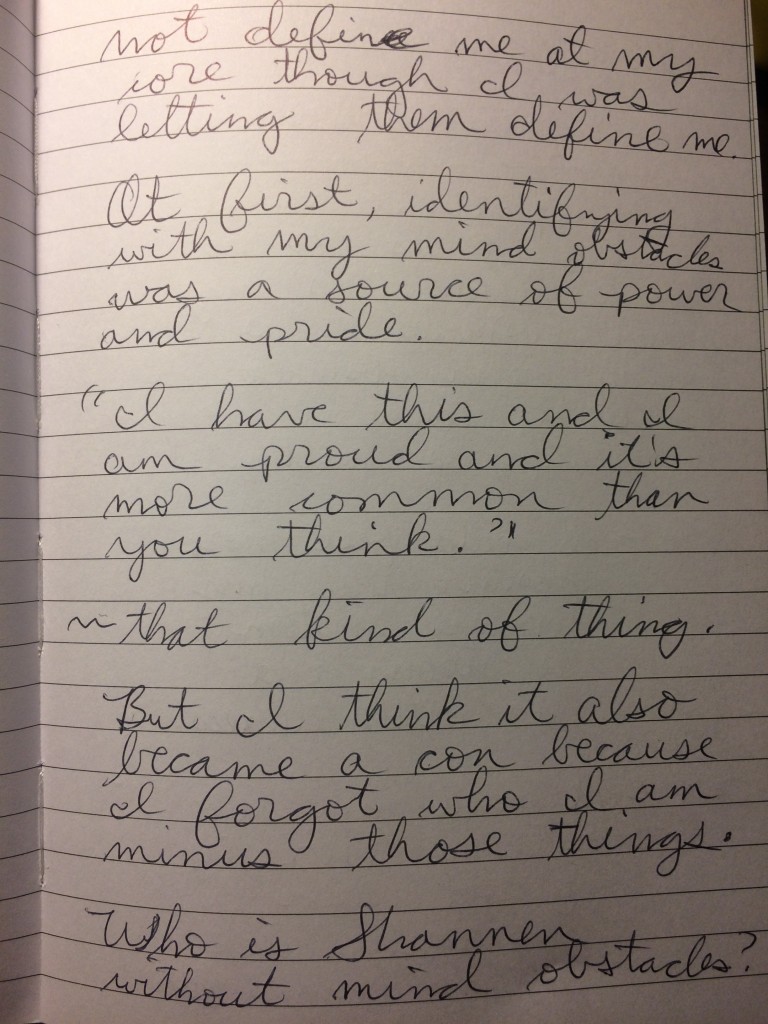 not define me at my
core though I was
letting them define me.
At first, identifying
with my mind obstacles
was a source of power
and pride.
"I have this and I
am proud and it's
more common than
you think."
~ that kind of thing.
But I think it also
became a con because
I forgot who I am
minus those things.
Who is Shannen
without mind obstacles?